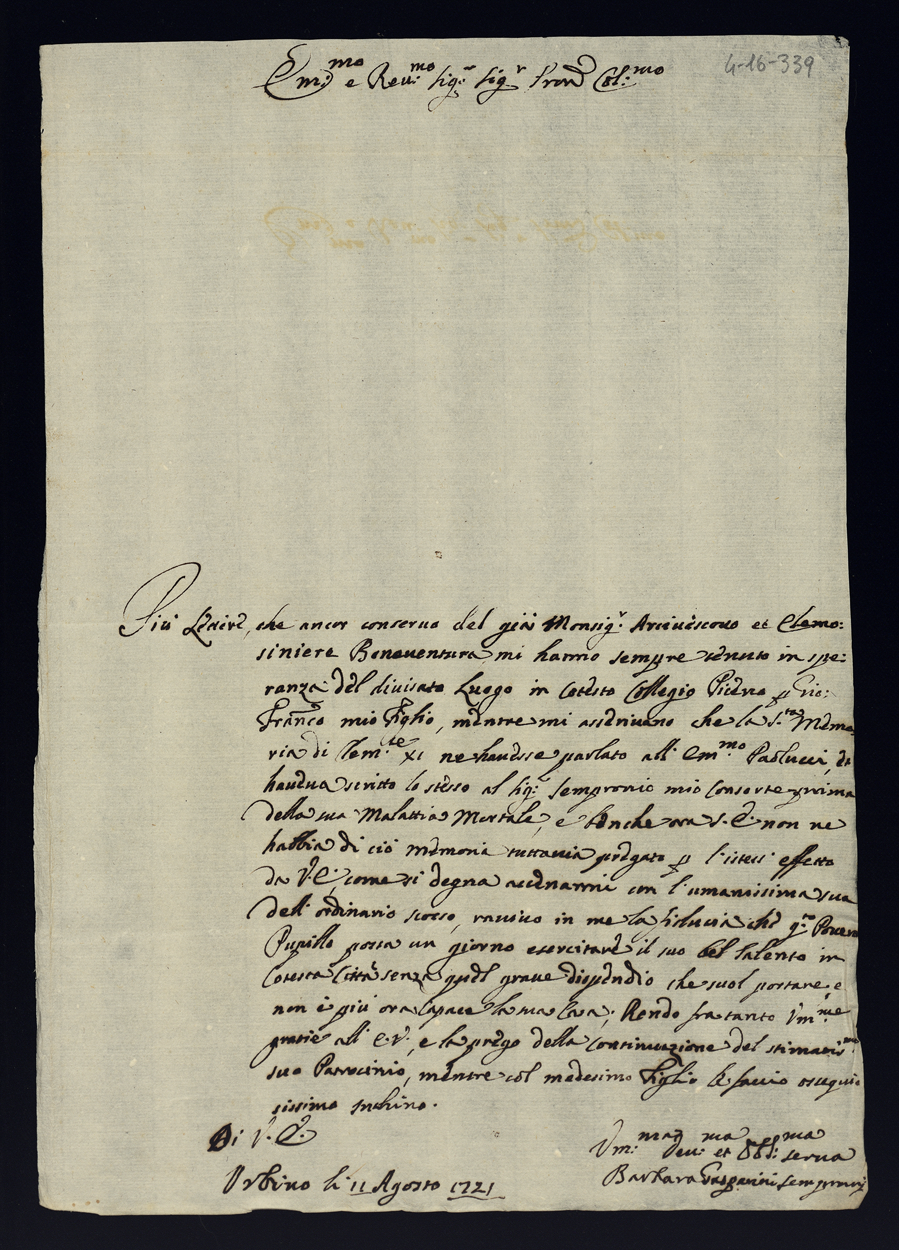 4-16-339
Em.mo e Reu.mo Sig.r Sig.r Pron Col:mo
Piu Lettere, che ancor conseruo del già Monsig.r Arciuescouo et Elemo:
siniere Bonauentura, mi hanno sempre tenuto in spe:
ranza del diuisato Luogo in Cotesto Collegio Piceno p Gio:
Franco mio Figlio, mentre mi asseriuano che la S.ta Memo
ria di Clem.te XI ne hauesse parlato all' Em.mo Paolucci, et
haueua scritto lo stesso al Sig.r Sempronio mio Consorte prima
della sua Malattia Mortale, e benche ora S. E. non ne
habbia di ciò memoria tuttauia pregato p l'istess' effetto
da V. E., come si degna accennarmi con l'umanissima sua
dell' ordinario scorso, rauuiuo in me la fiducia che q.to Pouero
Pupillo possa un giorno esercitare il suo bel talento in
Cotesta Città senza quel graue dispendio che suol portare, e
non è giu ora Capace la sua Casa; Rendo fra tanto Vm:me
gratie all' E. V., e la prego della Continuazione del stimatis.mo
suo Patrocinio, mentre col medesimo Figlio le faccio ossequio
sissimo Inchino.
Di V. E.
Vm:ma Deu:ma et Obl:ma Serua
Vrbino li 11 Agosto 1721
Barbara Gasparini Semproni